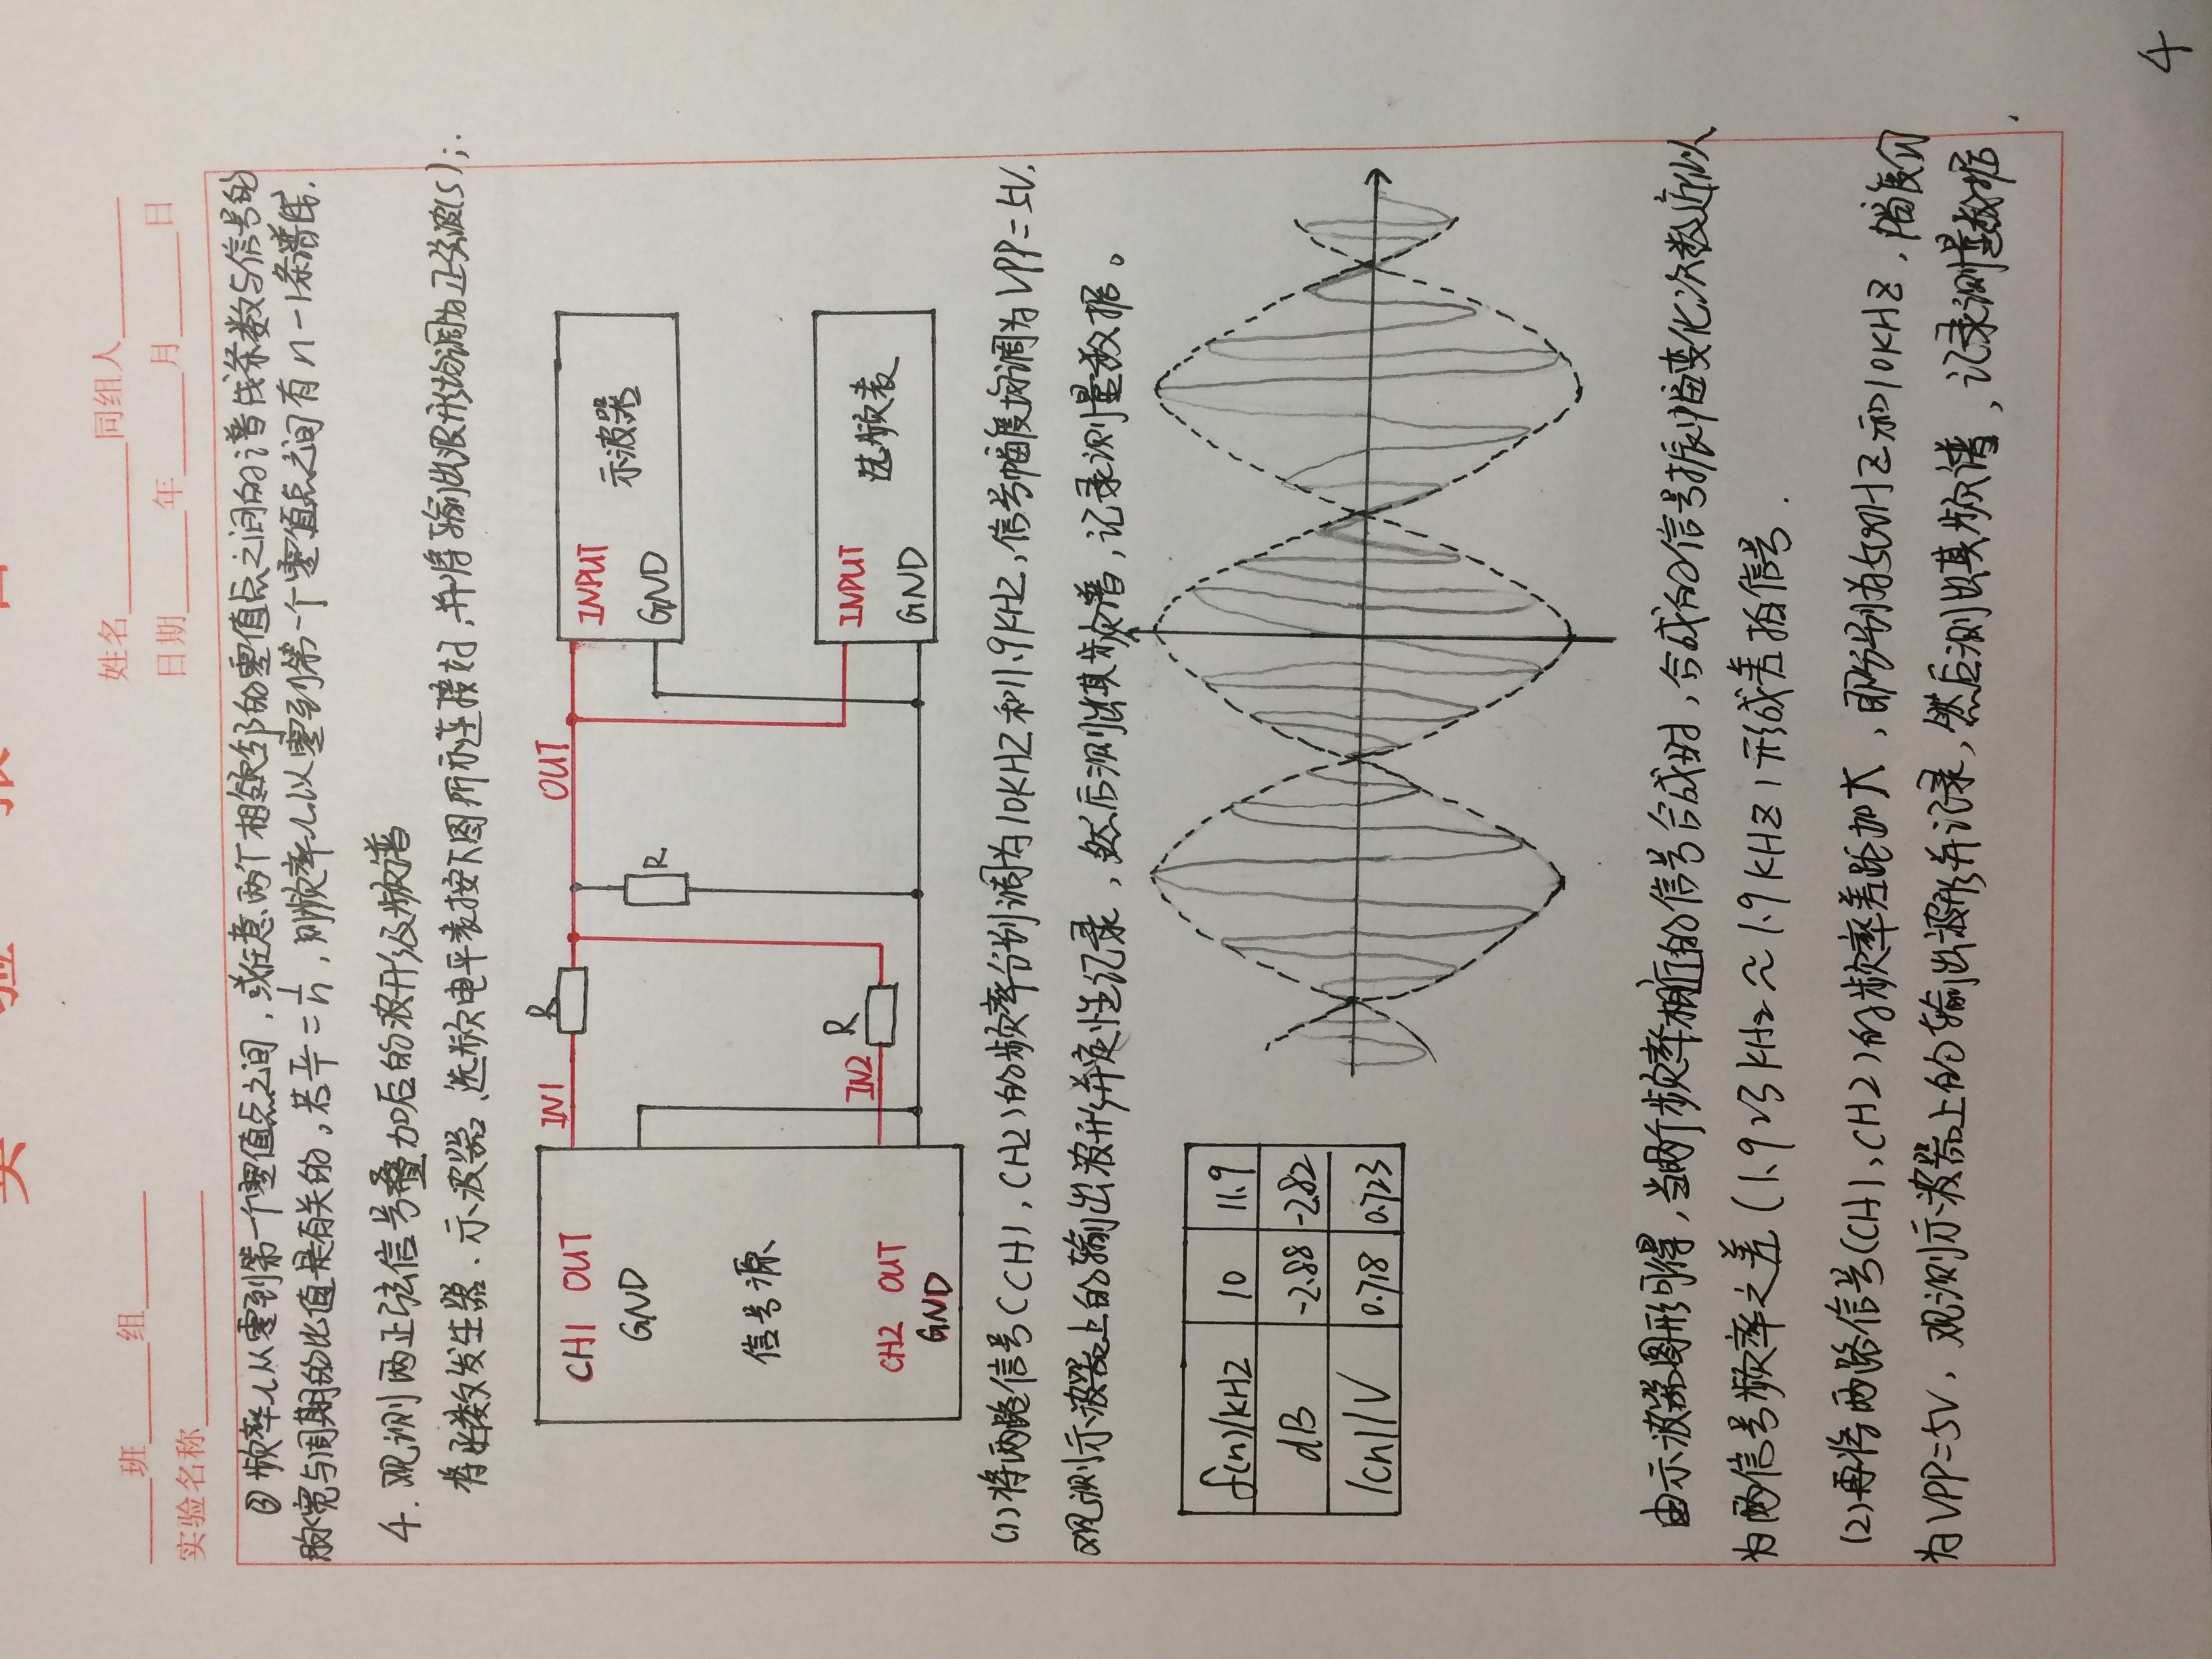 实 验 报 告
班 组
姓名 同组人
实验名称
日期 年 月 日
③频率从零到第一个零值点之间,或任意两个相邻的零值点之间的谱线条数与信号的
脉宽与周期的比值是有关的。若τ/T=1/n,则频率从零到第一个零值点之间有n-1条谱线.
4.观测两正弦信号叠加后的波形级频谱
将函数发生器、示波器、选频电平表按下图所示连接好,并将输出波形均调为正弦波(S);
CH1 OUT
IN1
R
OUT
INPUT
示波器
GND
R
GND
信号源
IN2
R
INPUT
选频表
CH2 OUT
GND
GND
(1)将两路信号(CH1,CH2)的频率分别调为10KHZ和11.9KHZ,信号幅度均调为VPP=5V,
观测示波器上的输出波形并定性记录,然后测出其频谱,记录测量数据。
f(n)/kHZ 10 11.9
dB -2.88 -2.82
|cn|/V 0.718 0.723
由示波器图形可得,当两个频率相近的信号合成时,合成的信号振幅变化次数近似
为两信号频率之差(1.923kHz≈1.9KHZ)形成差拍信号.
(2)再将两路信号(CH1,CH2)的频率差距加大,即分别为500HZ和10KHZ,幅度仍
为VPP=5V,观测示波器上的输出波形并记录,然后测出其频谱,记录测量数据.
4